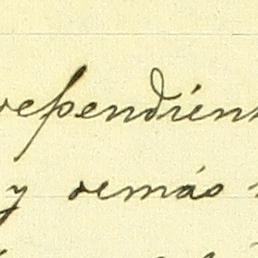 rependien
y demás